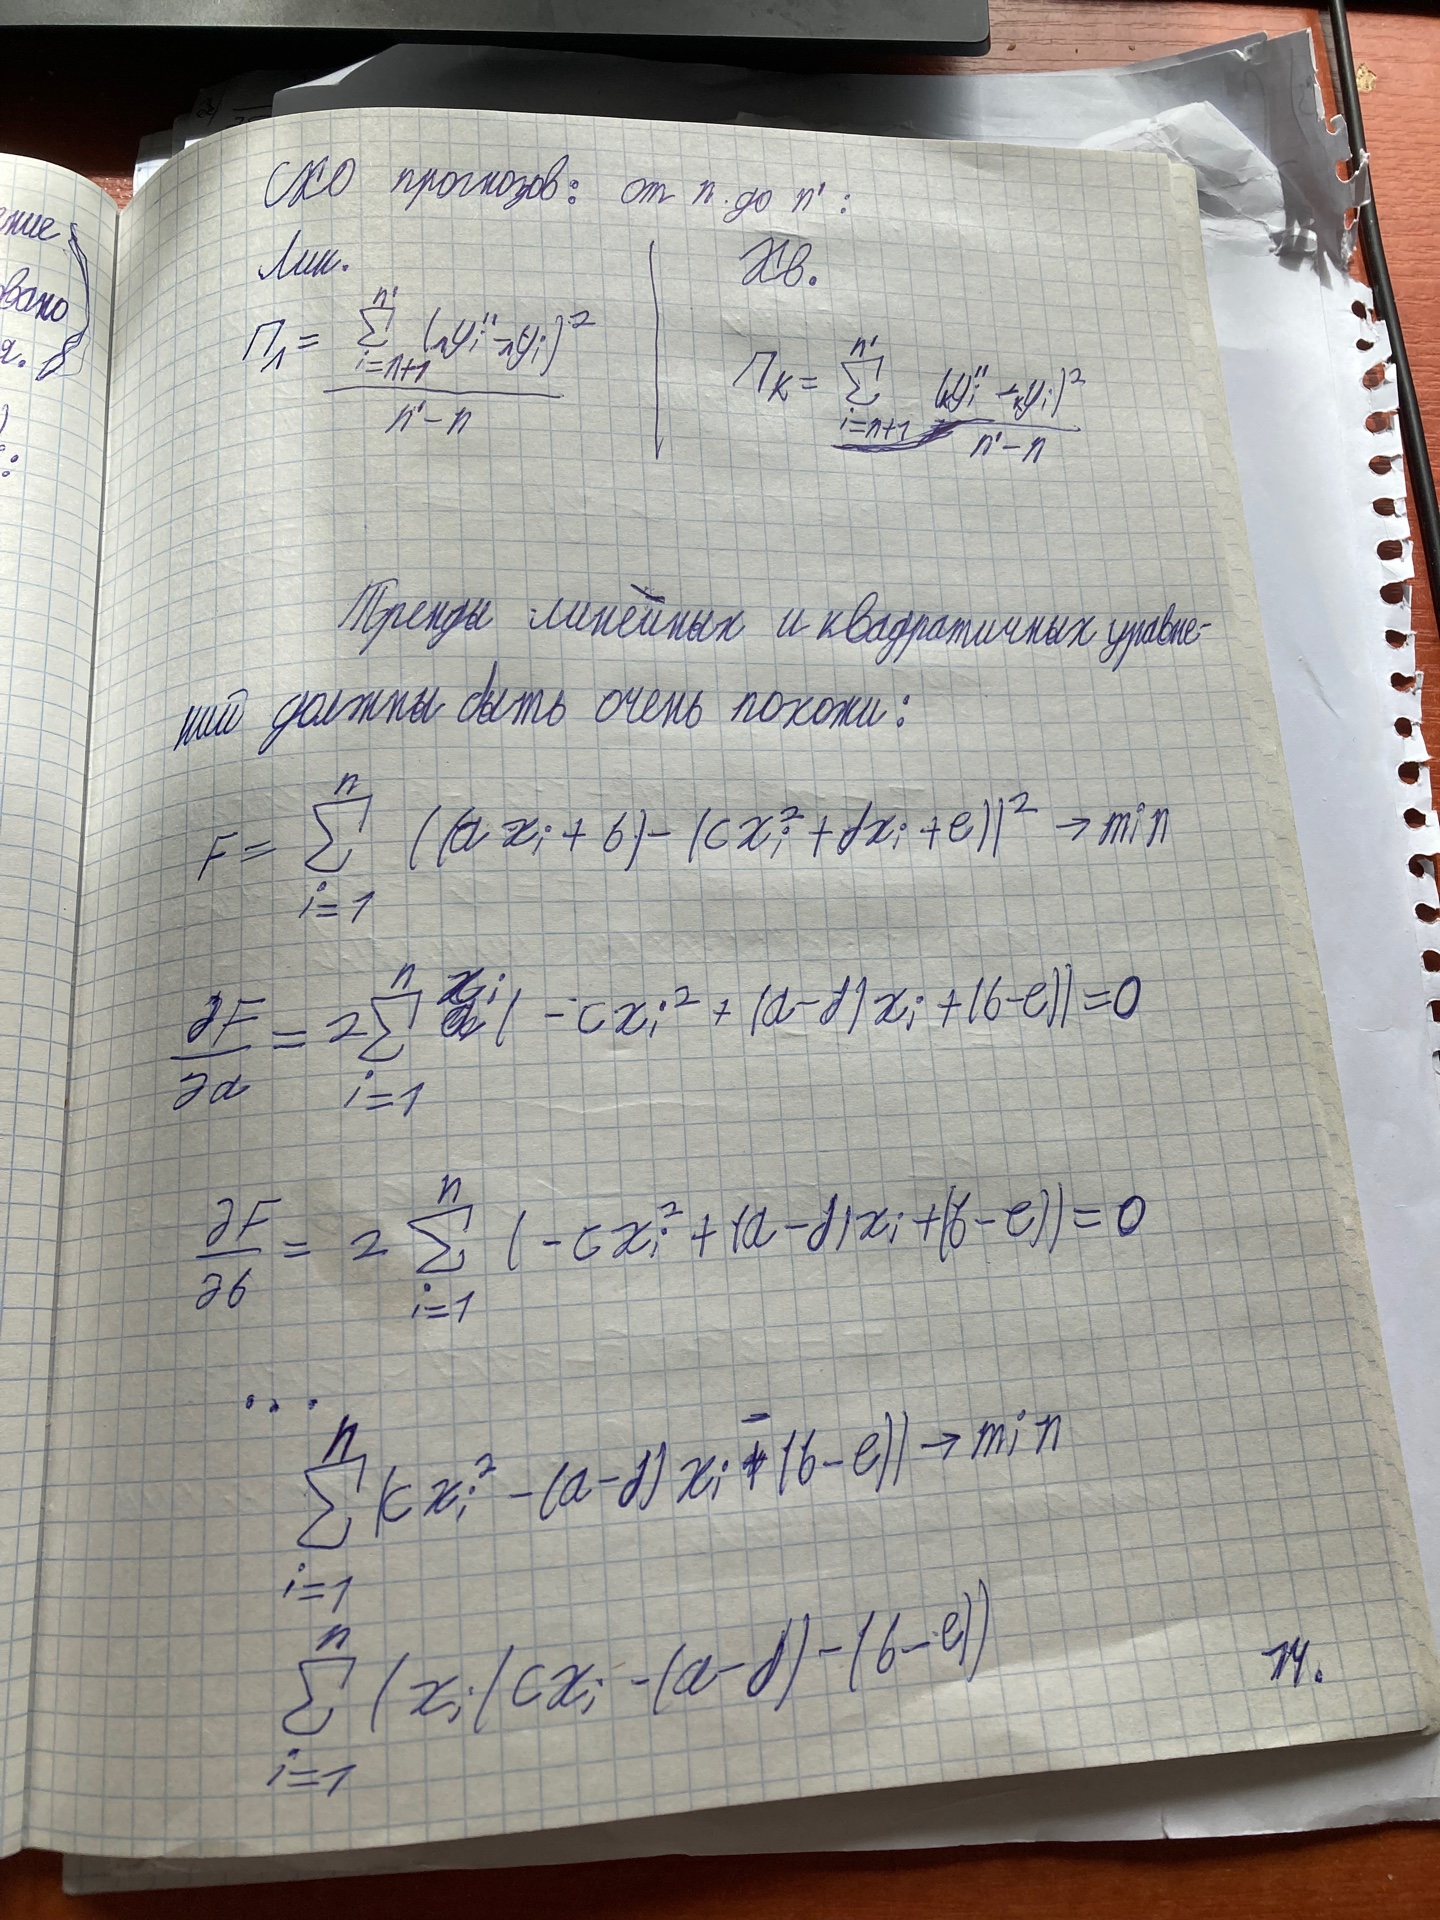 ение
овано
я.
СКО прогнозов: от n до n':
Лин.
Кв.
Пл = ∑ i=n+1 n' (лyi'' - лyi)² / n' - n
Пк = ∑ i=n+1 n' (кyi'' - кyi)² / n' - n
Тренды линейных и квадратичных уравне-
ний должны быть очень похожи:
F = ∑ i=1 n ((axi + b) - (cxi² + dxi + e))² → min
∂F/∂a = 2∑ i=1 n xi(-cxi² + (a-d)xi + (b-e)) = 0
∂F/∂b = 2 ∑ i=1 n (-cxi² + (a-d)xi + (b-e)) = 0
...
∑ i=1 n (cxi² - (a-d)xi - (b-e)) → min
∑ i=1 n (xi(cxi - (a-d) - (b-e))
14.